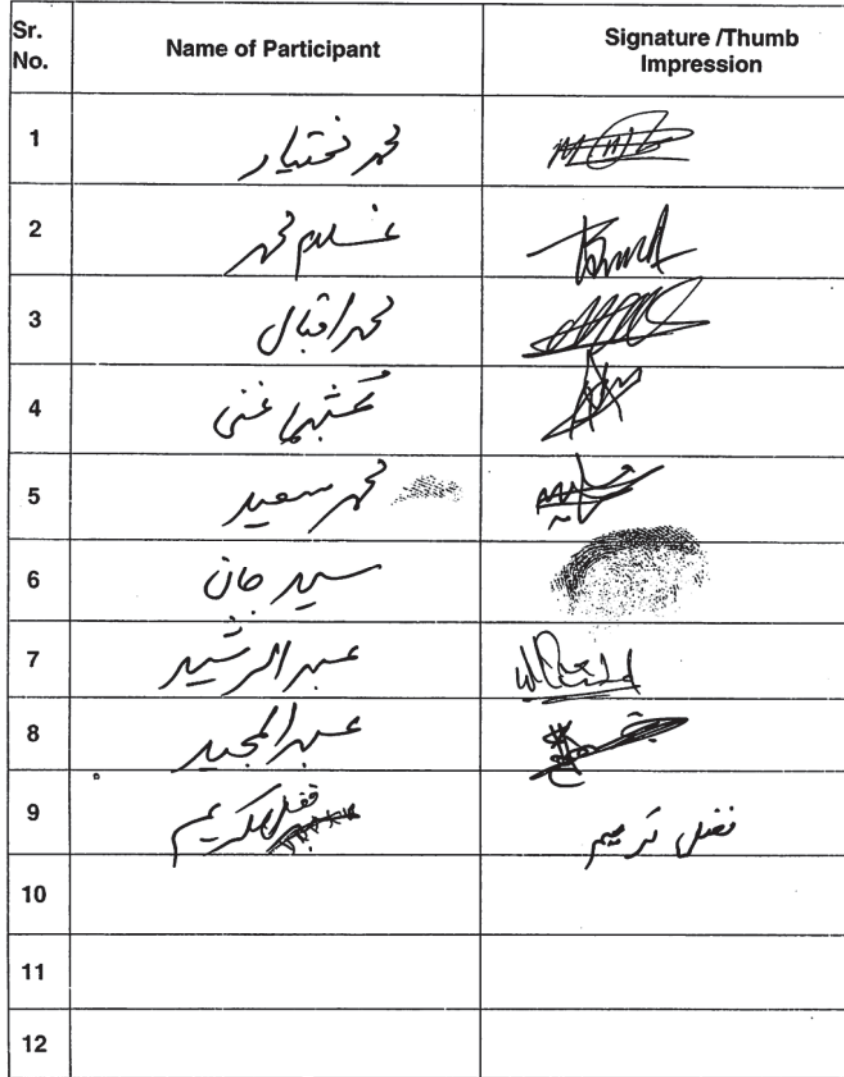 Sr. No. Name of Participant Signature /Thumb Impression
1 محمد بختیار
2 غلام محمد
3 محمد اقبال
4 غنی
5 محمد سعید
6 سید جان
7 عبدالرشید
8 عبدالمجید
9 فضل کریم فضل کریم
10
11
12